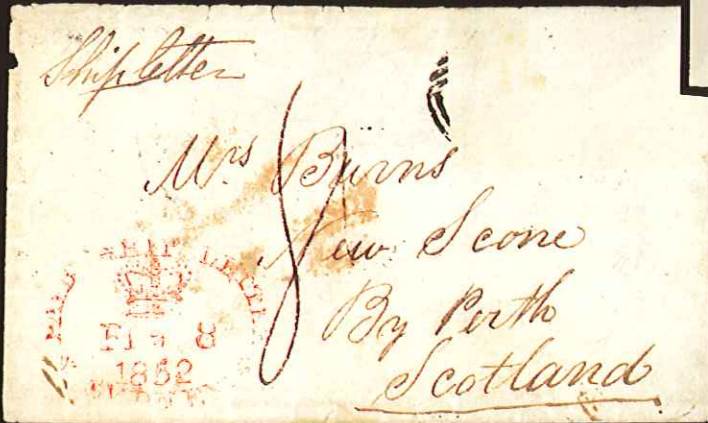 Ship letter
Mrs Burns
New Scone
By Perth
Scotland
8
PAID SHIP LETTER
FE 8
1852
SYDNEY